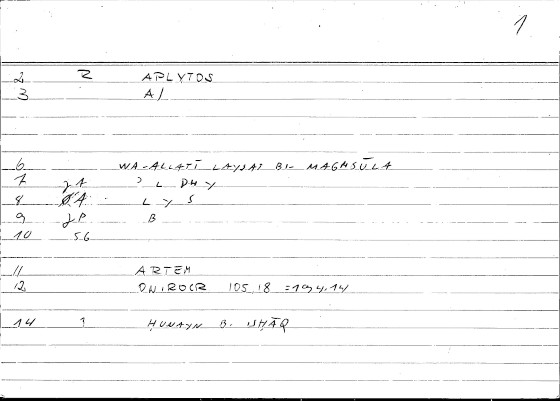 1
2 R APLYTOS
3 A/
6 WA-ALLATĪ LAYSAT BI- MAGHSŪLA
7 JA ʾ L DH Y
8 A L Y S
9 JP B
10 SG
11 ARTEM
12 ONIROCR 105,18 = 194,14
14 1 ḤUNAYN B. ISḤĀQ